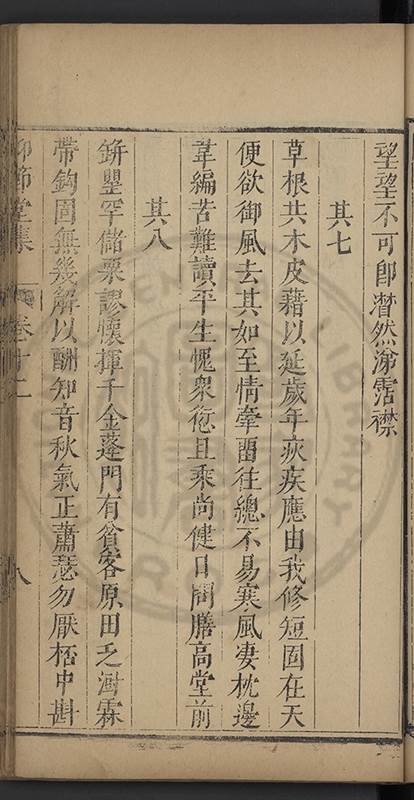 望望不可卽濳然涕霑襟
其七
草根共木皮藉以延歲年疢疾應由我修短固在天
便欲御風去其如至情牽畱往總不易寒風凄枕邊
韋編苦難讀平生愧衆愆且乘尚健日問膳高堂前
其八
缾罌罕儲粟謬懷揮千金蓬門有貧客原田乏澍霖
帶鉤固無幾解以酬知音秋氣正蕭瑟勿厭桮中斟
仰節堂集
卷十二
八